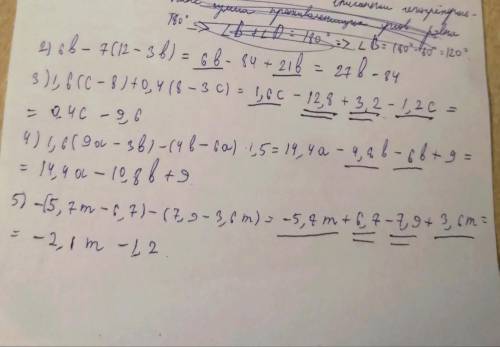 180° => ∠B + ∠D = 180° => ∠B = 180° - 60° = 120°
2) 6в - 7(12 - 3в) = 6в - 84 + 21в = 27в - 84
3) 1,6(с - 8) + 0,4(8 - 3с) = 1,6с - 12,8 + 3,2 - 1,2с =
= 0,4с - 9,6
4) 1,6(9а - 3в) - (4в - 6а) · 1,5 = 14,4а - 4,8в - 6в + 9 =
= 14,4а - 10,8в + 9
5) -(5,7m - 6,7) - (7,9 - 3,6m) = -5,7m + 6,7 - 7,9 + 3,6m =
= -2,1m - 1,2